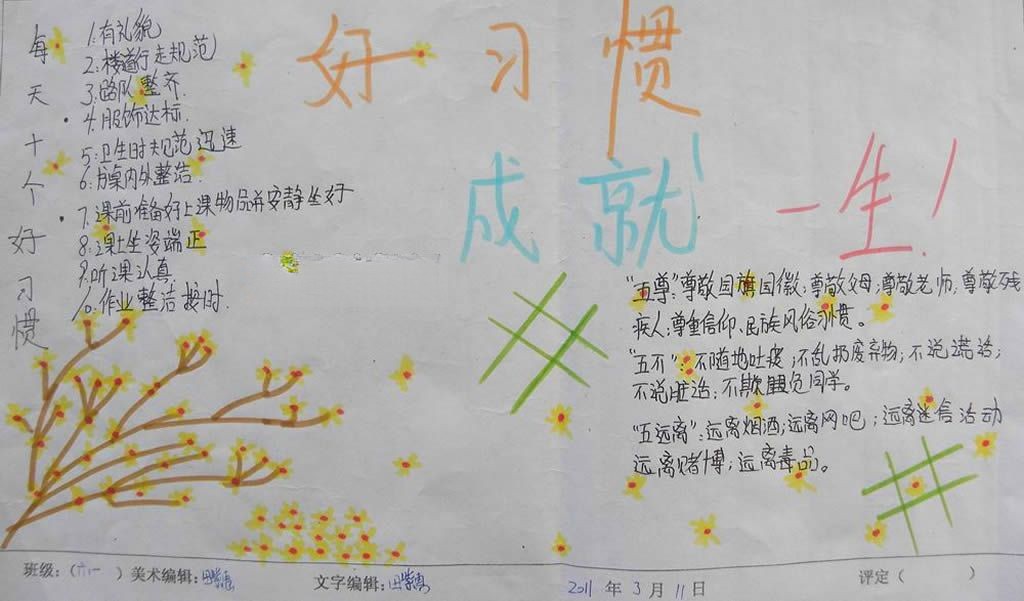 好习惯
成就一生！
每天十个好习惯
1.有礼貌
2.楼道行走规范
3.路队整齐.
4.服饰达标.
5.卫生时规范迅速
6.房桌内外整洁.
7.课前准备好上课物品并安静坐好
8.课上坐姿端正
9.听课认真
10.作业整洁按时.
“五尊”：尊敬国旗国徽；尊敬父母；尊敬老师；尊敬残
疾人；尊重信仰、民族风俗习惯。
“五不”：不随地吐痰；不乱扔废弃物；不说谎话；
不说脏话；不欺负同学。
“五远离”：远离烟酒；远离网吧；远离迷信活动
远离赌博；远离毒品。
班级：（六一）美术编辑：田紫
文字编辑：田紫
2011年3月11日
评定（ ）